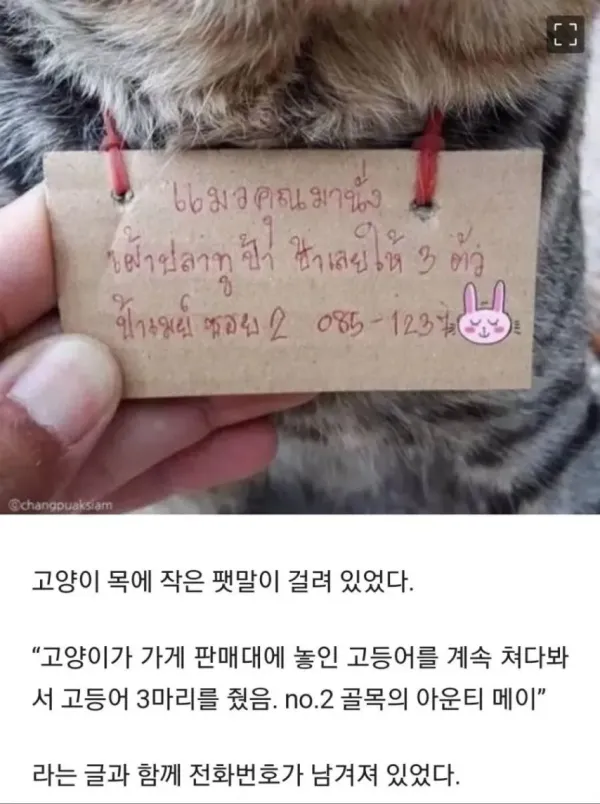 แมวคุณมานั่ง
เฝ้าปลาทูป้า ป้าเลยให้ 3 ตัว
ป้าเมย์ ซอย 2 085-123
@changpuaksiam
고양이 목에 작은 팻말이 걸려 있었다.
“고양이가 가게 판매대에 놓인 고등어를 계속 쳐다봐
서 고등어 3마리를 줬음. no.2 골목의 아운티 메이”
라는 글과 함께 전화번호가 남겨져 있었다.